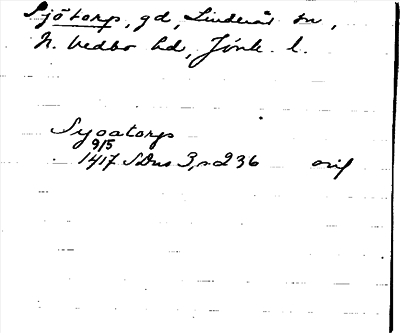 Sjötorp, gd, Linderås sn,
N. Vedbo hd, Jönk. l.
Syoatorp
9/5
1417 SDns 3, s 236 orig